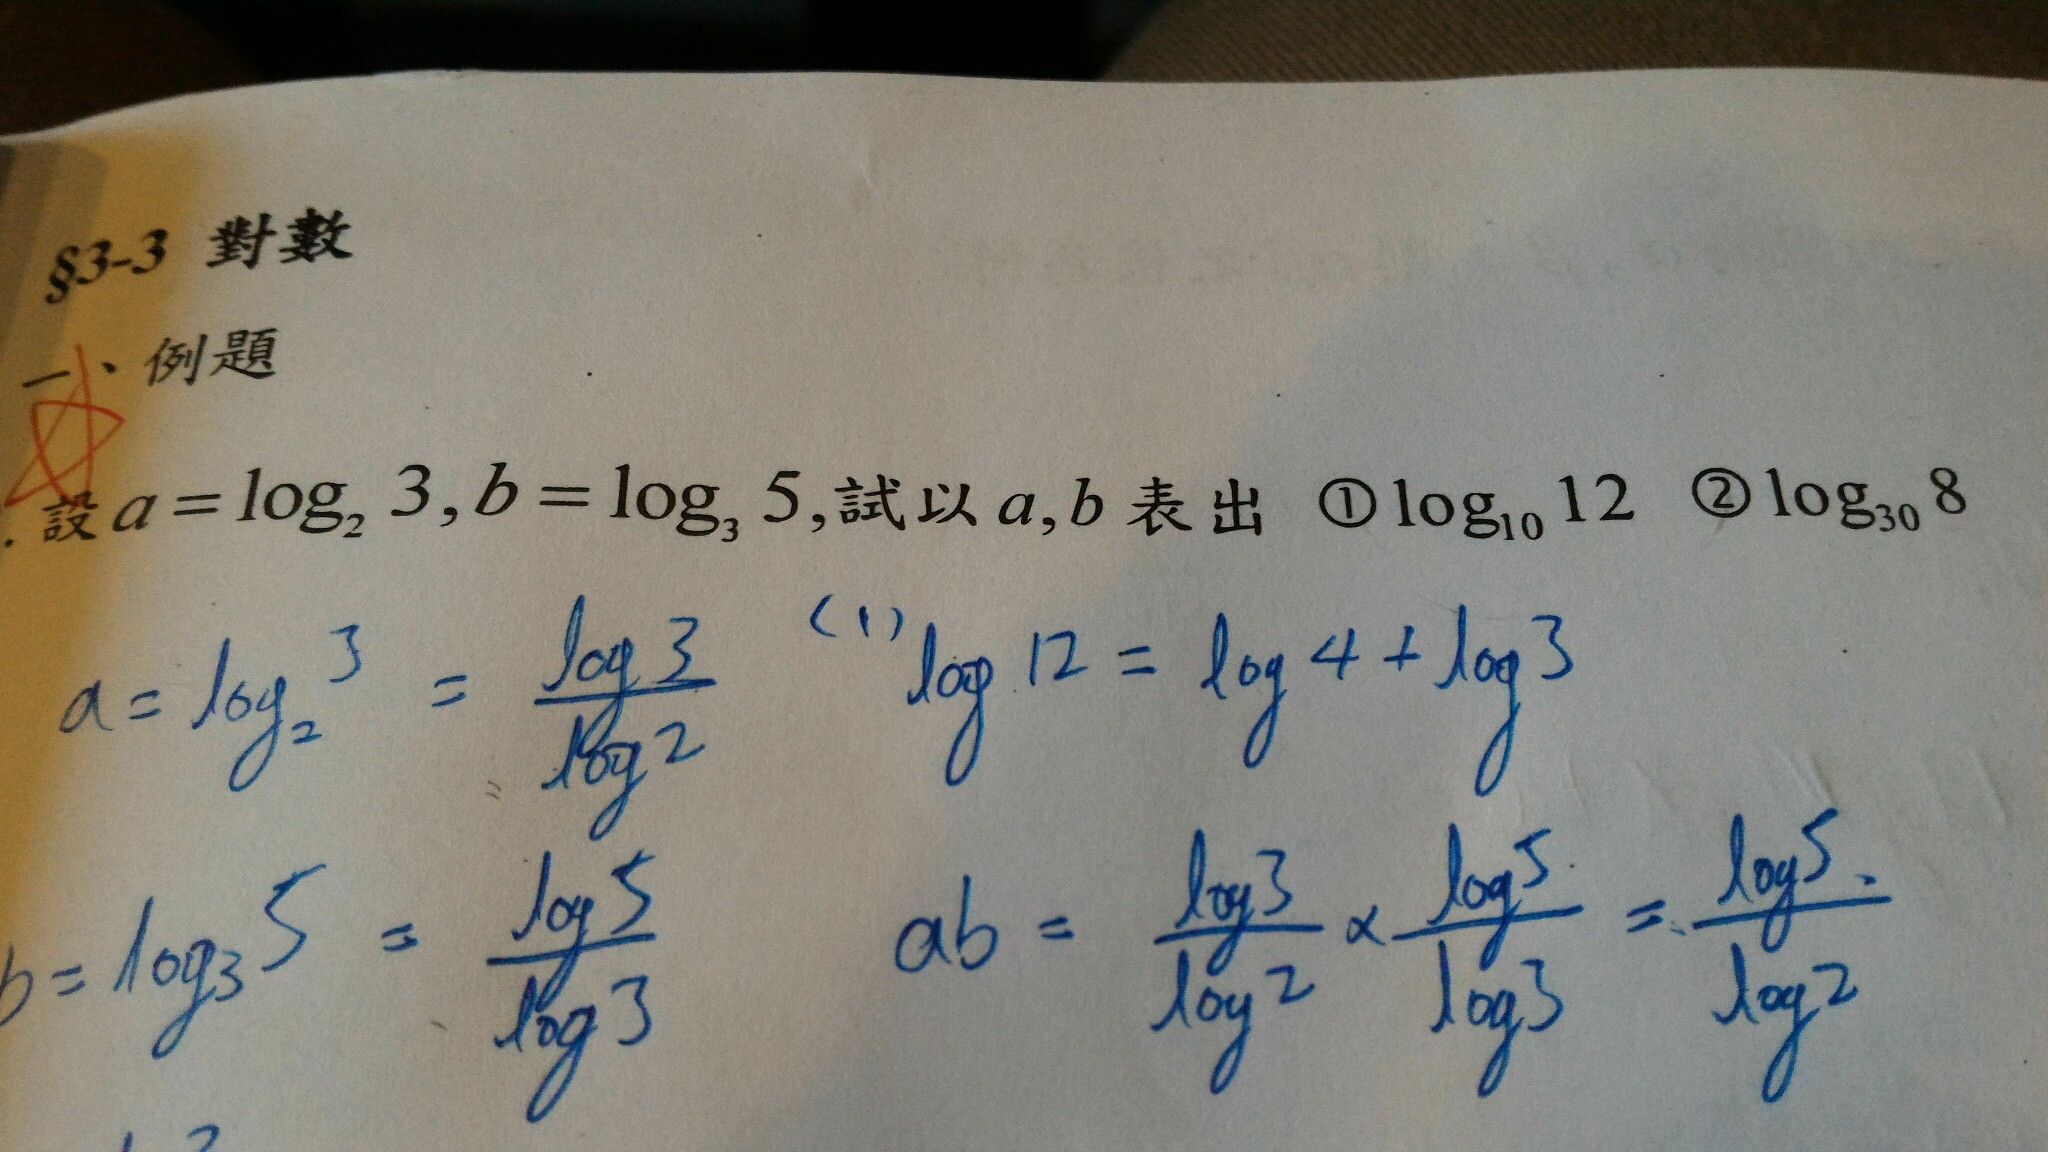 §3-3 對數
一、例題
. 設 a = log₂ 3, b = log₃ 5, 試以 a, b 表出 ① log₁₀ 12 ② log₃₀ 8
a = log₂ 3 = log 3 / log 2
(1) log 12 = log 4 + log 3
b = log₃ 5 = log 5 / log 3
ab = log 3 / log 2 × log 5 / log 3 = log 5 / log 2